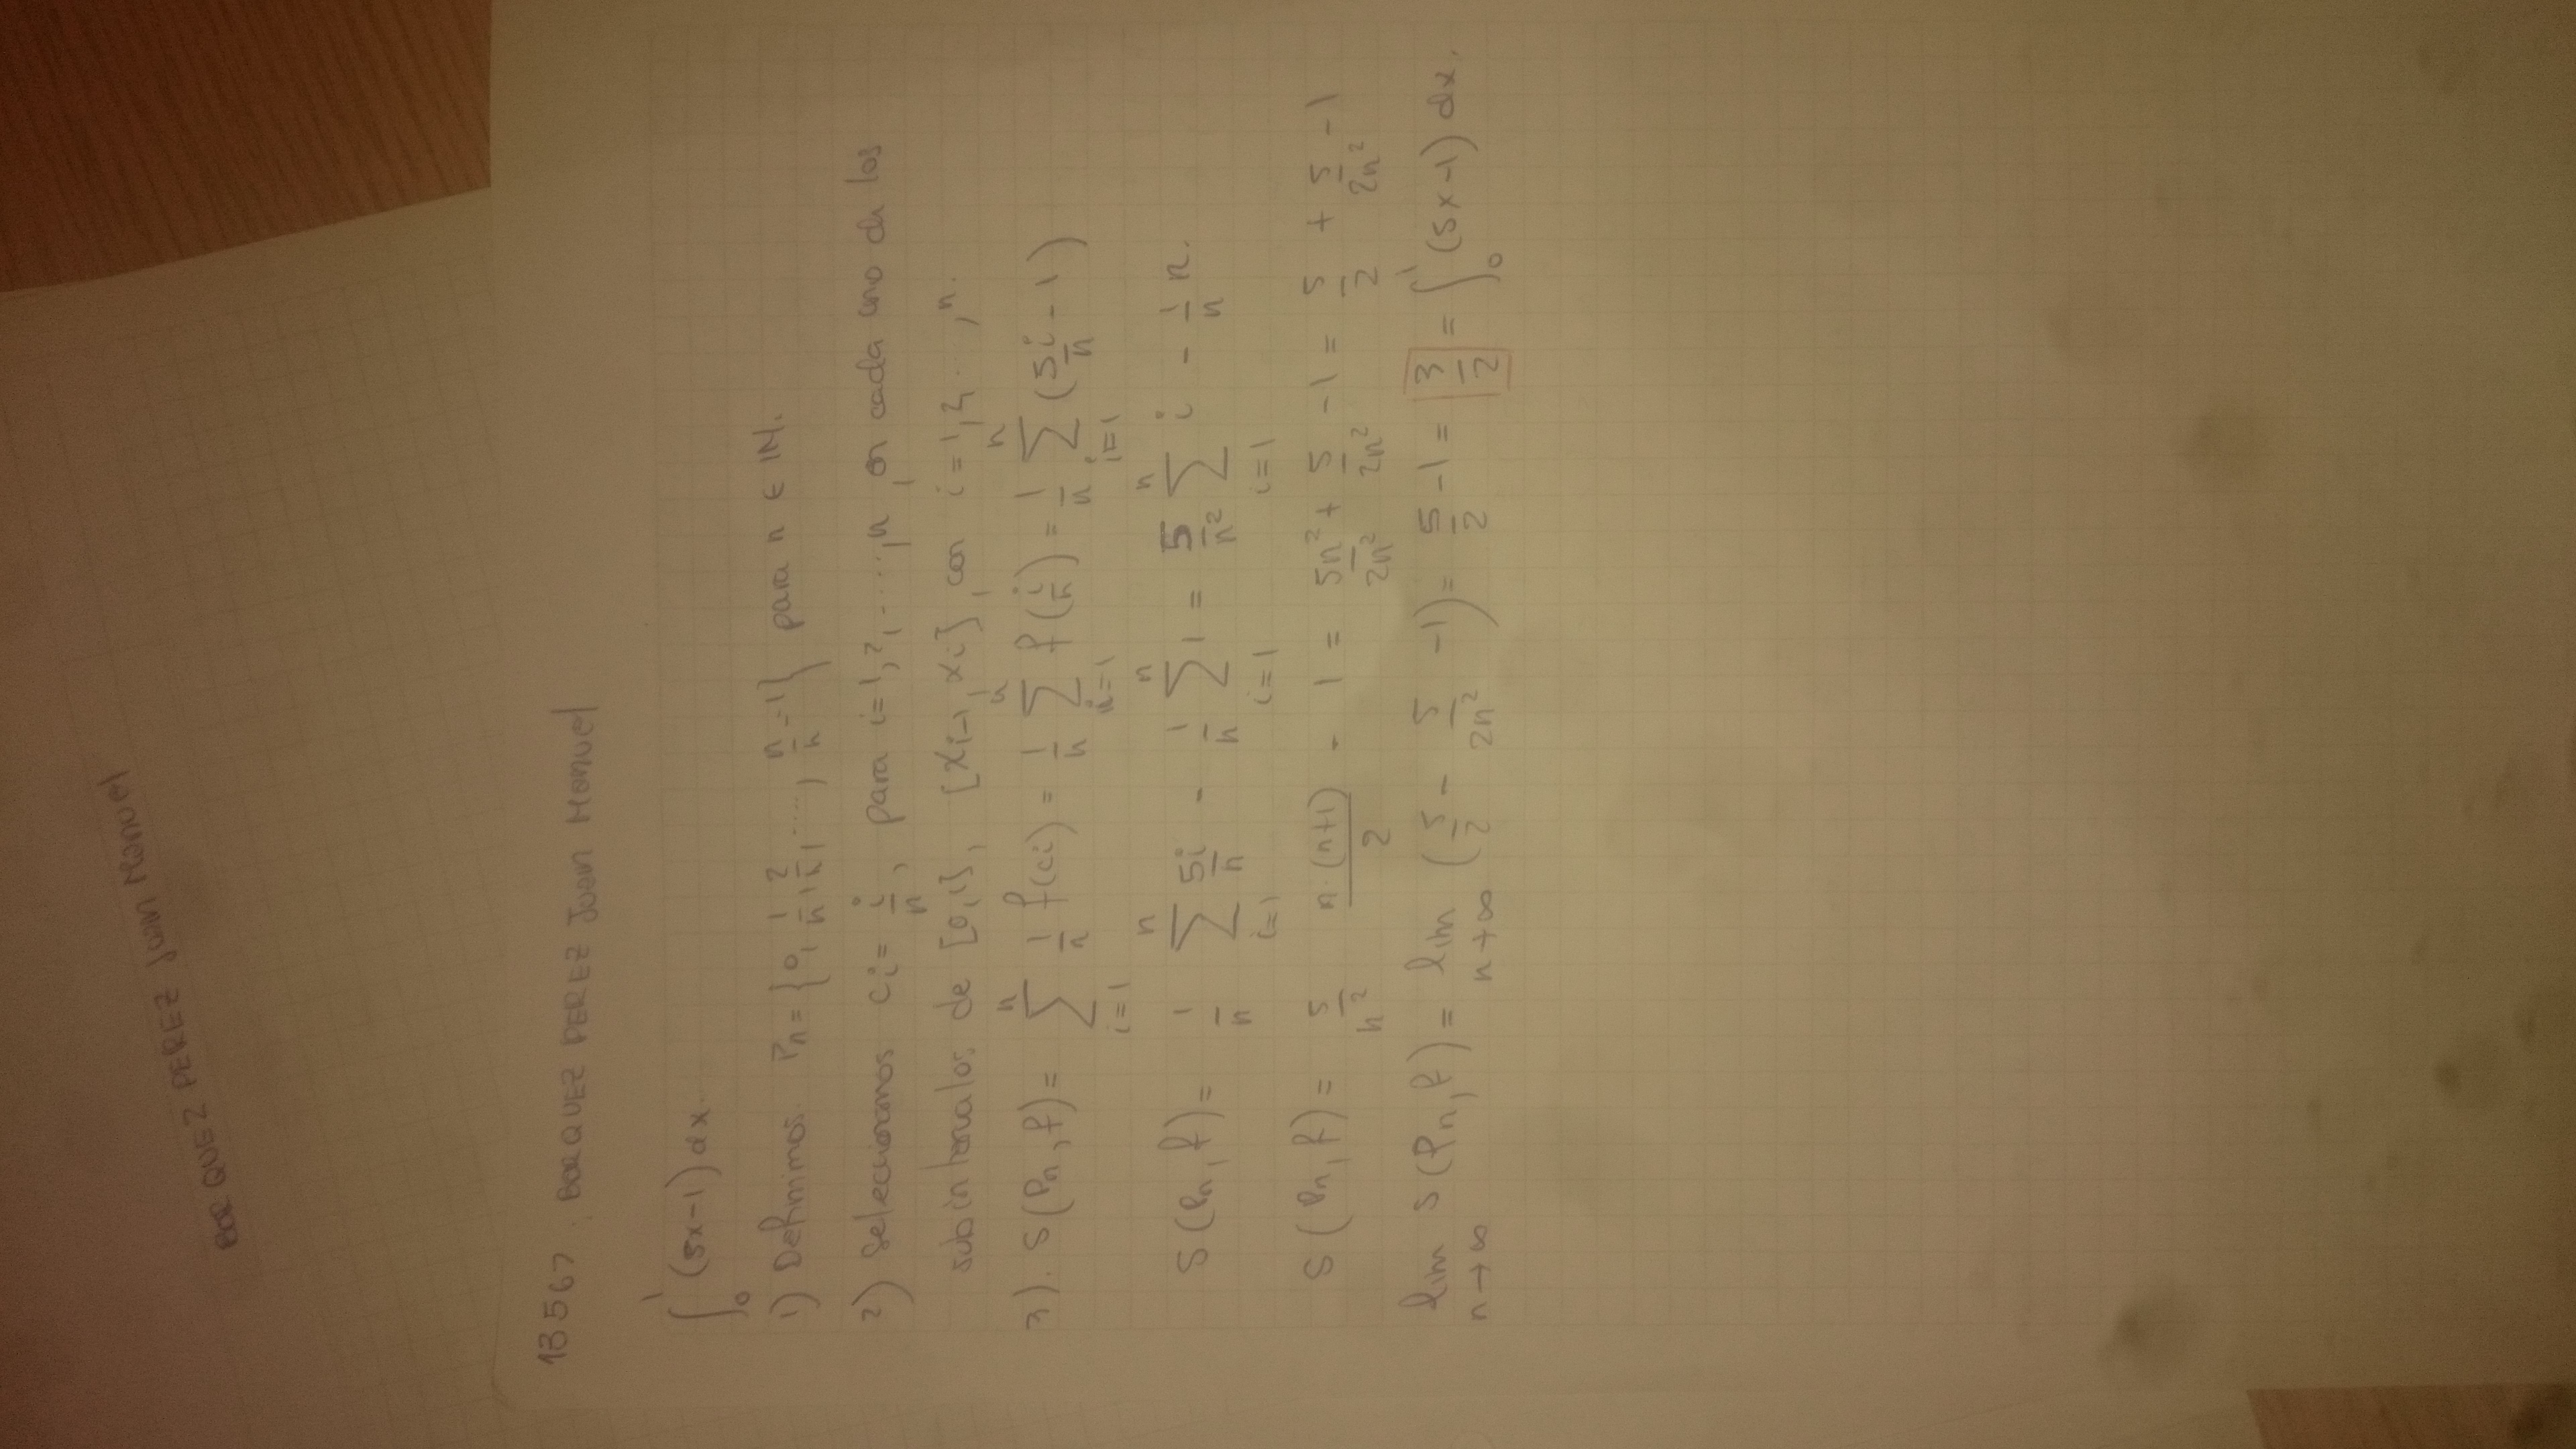 BORQUEZ PEREZ Juan Manuel
13567. BORQUEZ PEREZ Juan Manuel
∫₀¹ (5x-1) dx.
1) Definimos Pn = {0, 1/n, 2/n, ....., n/n = 1} para n ∈ IN.
2) Seleccionamos ci = i/n, para i=1,2,.....,n, en cada uno de los
subintervalos de [0,1], [xi-1, xi], con i=1,2,...,n.
3). S(Pn, f) = ∑ᵢ₌₁ⁿ 1/n f(ci) = 1/n ∑ᵢ₌₁ⁿ f(i/n) = 1/n ∑ᵢ₌₁ⁿ (5i/n - 1)
S(Pn, f) = 1/n ∑ᵢ₌₁ⁿ 5i/n - 1/n ∑ᵢ₌₁ⁿ 1 = 5/n² ∑ᵢ₌₁ⁿ i - 1/n n.
S(Pn, f) = 5/n² n·(n+1)/2 - 1 = 5n²/2n² + 5/2n² - 1 = 5/2 + 5/2n² - 1
lim n→∞ S(Pn, f) = lim n→∞ (5/2 - 5/2n² - 1) = 5/2 - 1 = 3/2 = ∫₀¹ (5x-1) dx.